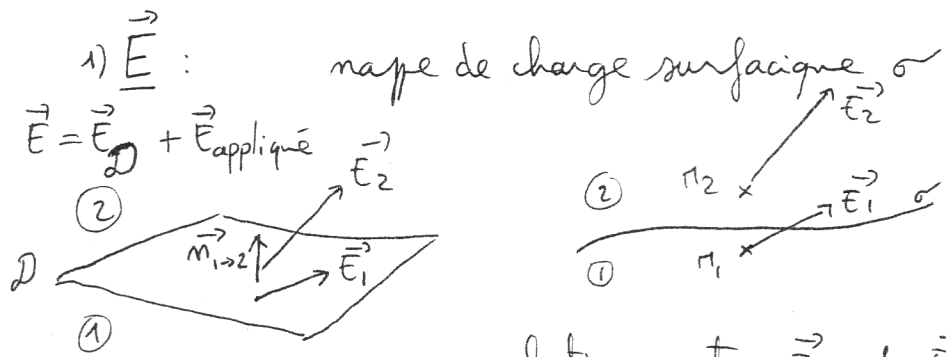 1) E⃗ : nappe de charge surfacique σ
E⃗ = E⃗_D + E⃗_appliqué
E⃗₂
E⃗₂
②
n⃗₁→₂
E⃗₁
D
①
②
M₂
E⃗₁
σ
①
M₁